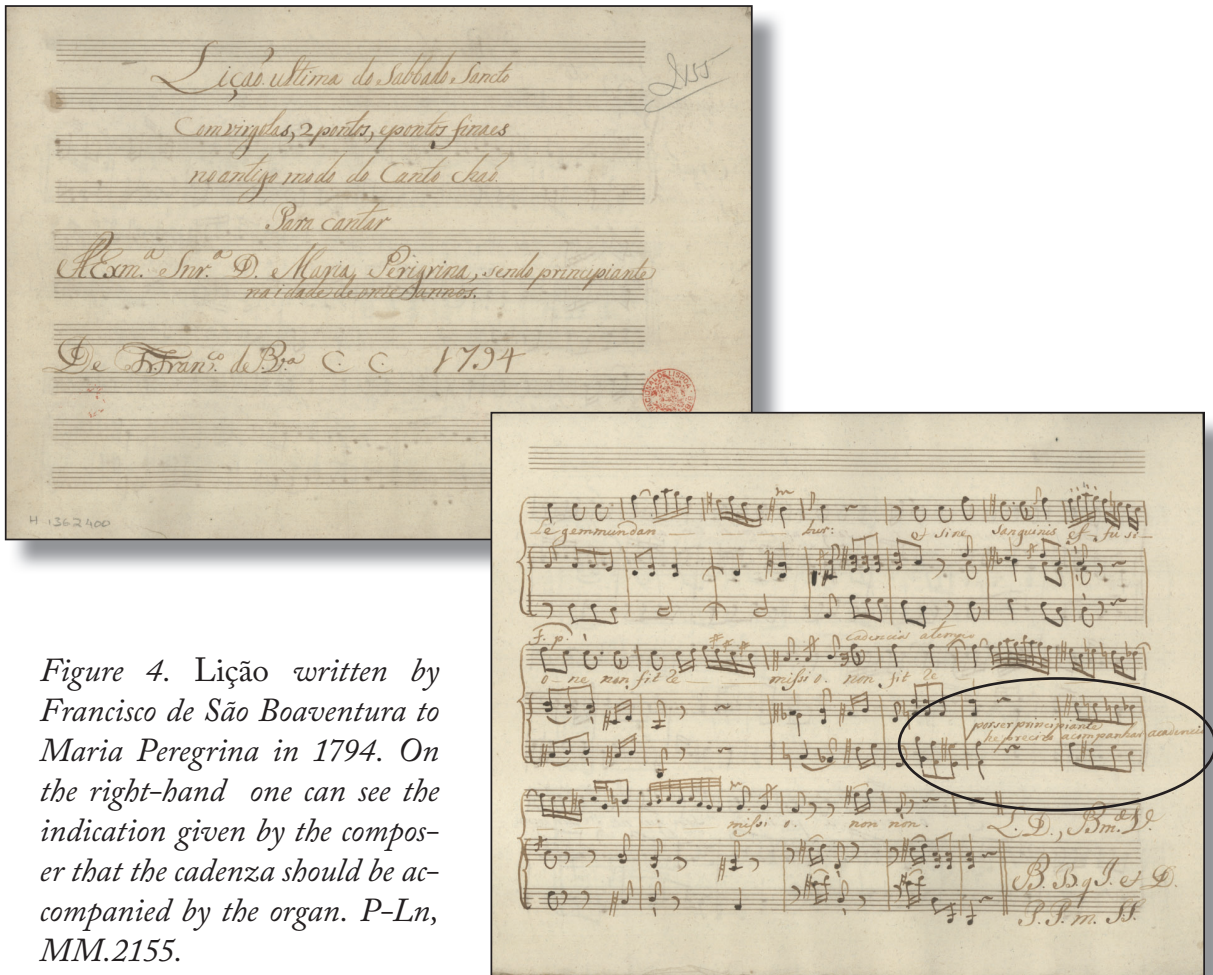 Lição ultima do Sabbado Sancto
Com virgolas, 2 pontos, e pontos finaes
no antigo modo do Canto chaõ.
Para cantar
A Exm.ª Snr.ª D. Maria Perigrina, sendo principiante
na idade de onze annos.
De Fr. Fran.co de B.ra C. C. 1794
2155
H 1362400
le gem mundan — — — — tur: et sine sanguinis ef-fu si-
f. p.
cadencias a tempo
o-ne non fit re — — missi o. non fit re
por ser principiante
he preciso acompanhar a cadencia
— — — — missi o. non non.
L. D., B. m. V.
B. B. q J. et D.
P. F. m. H.
Figure 4. Lição written by
Francisco de São Boaventura to
Maria Peregrina in 1794. On
the right-hand one can see the
indication given by the compos-
er that the cadenza should be ac-
companied by the organ. P-Ln,
MM.2155.